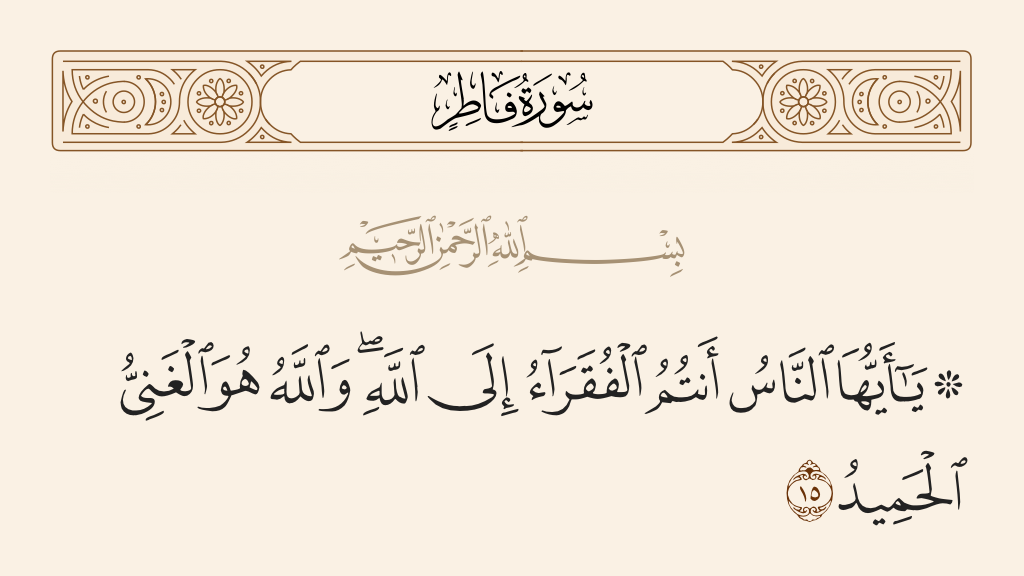 سُورَةُ فَاطِرٍ
بِسْمِ ٱللَّهِ ٱلرَّحْمَٰنِ ٱلرَّحِيمِ
۞ يَـٰٓأَيُّهَا ٱلنَّاسُ أَنتُمُ ٱلْفُقَرَآءُ إِلَى ٱللَّهِ ۖ وَٱللَّهُ هُوَ ٱلْغَنِىُّ
ٱلْحَمِيدُ ١٥